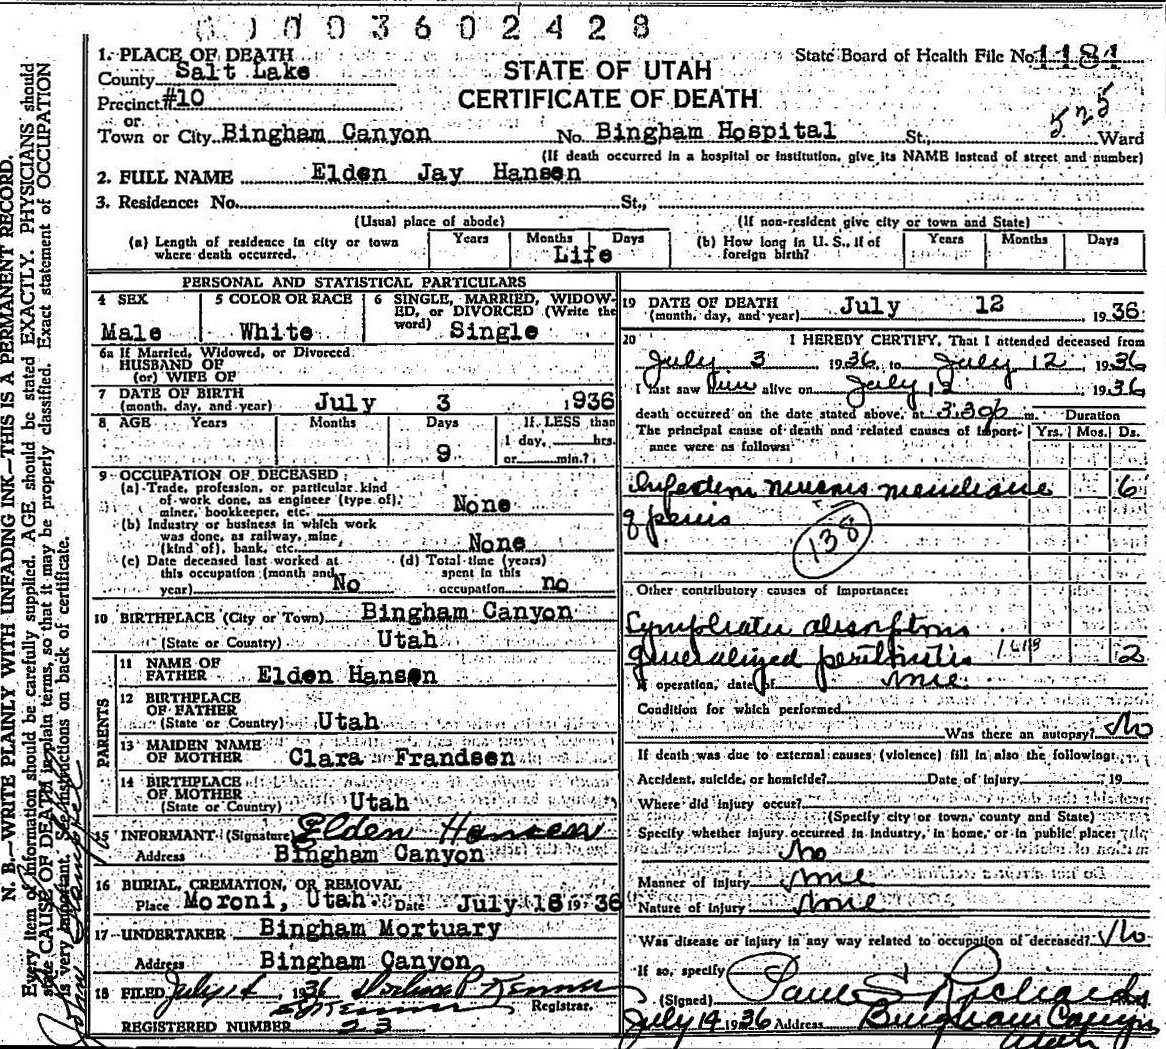 003602428
1. PLACE OF DEATH
State Board of Health File No. 1184
County Salt Lake
STATE OF UTAH
Precinct #10
CERTIFICATE OF DEATH
or
525
Town or City Bingham Canyon No. Bingham Hospital St., Ward
(If death occurred in a hospital or institution, give its NAME instead of street and number)
2. FULL NAME Elden Jay Hansen
3. Residence: No. St.,
(Usual place of abode) (If non-resident give city or town and State)
(a) Length of residence in city or town where death occurred. Years Months Days Life
(b) How long in U. S., if of foreign birth? Years Months Days
PERSONAL AND STATISTICAL PARTICULARS
4 SEX Male
5 COLOR OR RACE White
6 SINGLE, MARRIED, WIDOWED, or DIVORCED (Write the word) Single
6a If Married, Widowed, or Divorced
HUSBAND OF
(or) WIFE OF
7 DATE OF BIRTH
(month, day, and year) July 3 1936
8 AGE Years Months Days If LESS than
9 1 day, hrs.
or min.?
9 OCCUPATION OF DECEASED:
(a) Trade, profession, or particular kind
of work done, as engineer (type of),
miner, bookkeeper, etc. None
(b) Industry or business in which work
was done, as railway, mine,
(kind of), bank, etc. None
(c) Date deceased last worked at
this occupation (month and
year) No
(d) Total time (years)
spent in this
occupation no
10 BIRTHPLACE (City or Town) Bingham Canyon
(State or Country) Utah
PARENTS
11 NAME OF
FATHER Elden Hansen
12 BIRTHPLACE
OF FATHER
(State or Country) Utah
13 MAIDEN NAME
OF MOTHER Clara Frandsen
14 BIRTHPLACE
OF MOTHER
(State or Country) Utah
15 INFORMANT (Signature) Elden Hansen
Address Bingham Canyon
16 BURIAL, CREMATION, OR REMOVAL
Place Moroni, Utah. Date July 15 1936
17 UNDERTAKER Bingham Mortuary
Address Bingham Canyon
18 FILED July 14, 1936
Registrar.
REGISTERED NUMBER 23
19 DATE OF DEATH
(month, day, and year) July 12 1936
20 I HEREBY CERTIFY, That I attended deceased from
July 3 1936, to July 12 1936
I last saw him alive on July 12 1936
death occurred on the date stated above, at 3.30p m. Duration
The principal cause of death and related causes of importance were as follows: Yrs. Mos. Ds.
Infection mucous membrane 6
of penis
138
Other contributory causes of importance:
Lymphatic absorptions
generalized peritonitis 2
If operation, date of none
Condition for which performed
Was there an autopsy? No
If death was due to external causes (violence) fill in also the following:
Accident, suicide, or homicide? Date of injury 19
Where did injury occur?
(Specify city or town, county and State)
Specify whether injury occurred in industry, in home, or in public place:
No
Manner of injury None
Nature of injury None
Was disease or injury in any way related to occupation of deceased? No
If so, specify
(Signed) Paul S Richards
July 14 1936 Address Bingham Canyon
Utah
N. B.—WRITE PLAINLY WITH UNFADING INK—THIS IS A PERMANENT RECORD.
Every item of information should be carefully supplied. AGE should be stated EXACTLY. PHYSICIANS should
state CAUSE OF DEATH in plain terms, so that it may be properly classified. Exact statement of OCCUPATION
is very important. See instructions on back of certificate.